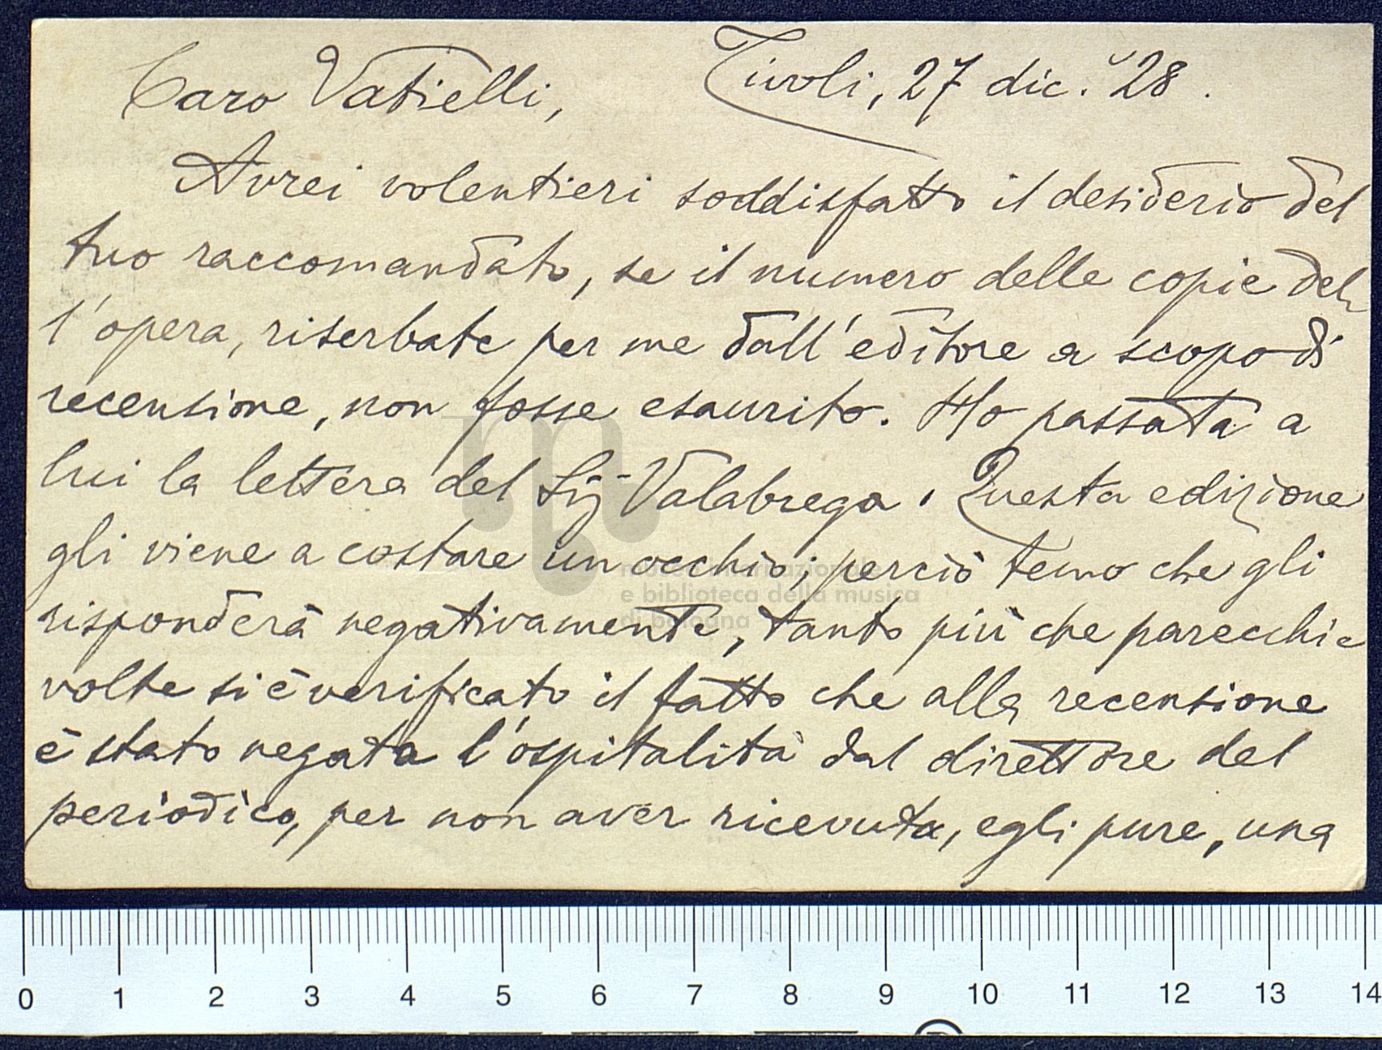 Tivoli, 27 dic. '28.
Caro Vatielli,
Avrei volentieri soddisfatto il desiderio del
tuo raccomandato, se il numero delle copie del-
l'opera, riserbate per me dall'editore a scopo di
recensione, non fosse esaurito. Ho passata a
lui la lettera del Sig. Valabrega. Questa edizione
gli viene a costare un occhio; perciò temo che gli
risponderà negativamente, tanto più che parecchie
volte si è verificato il fatto che alla recensione
è stato negata l'ospitalità dal direttore del
periodico, per non aver ricevuta, egli pure, una
museo internazionale
e biblioteca della musica
di bologna
0 1 2 3 4 5 6 7 8 9 10 11 12 13 14